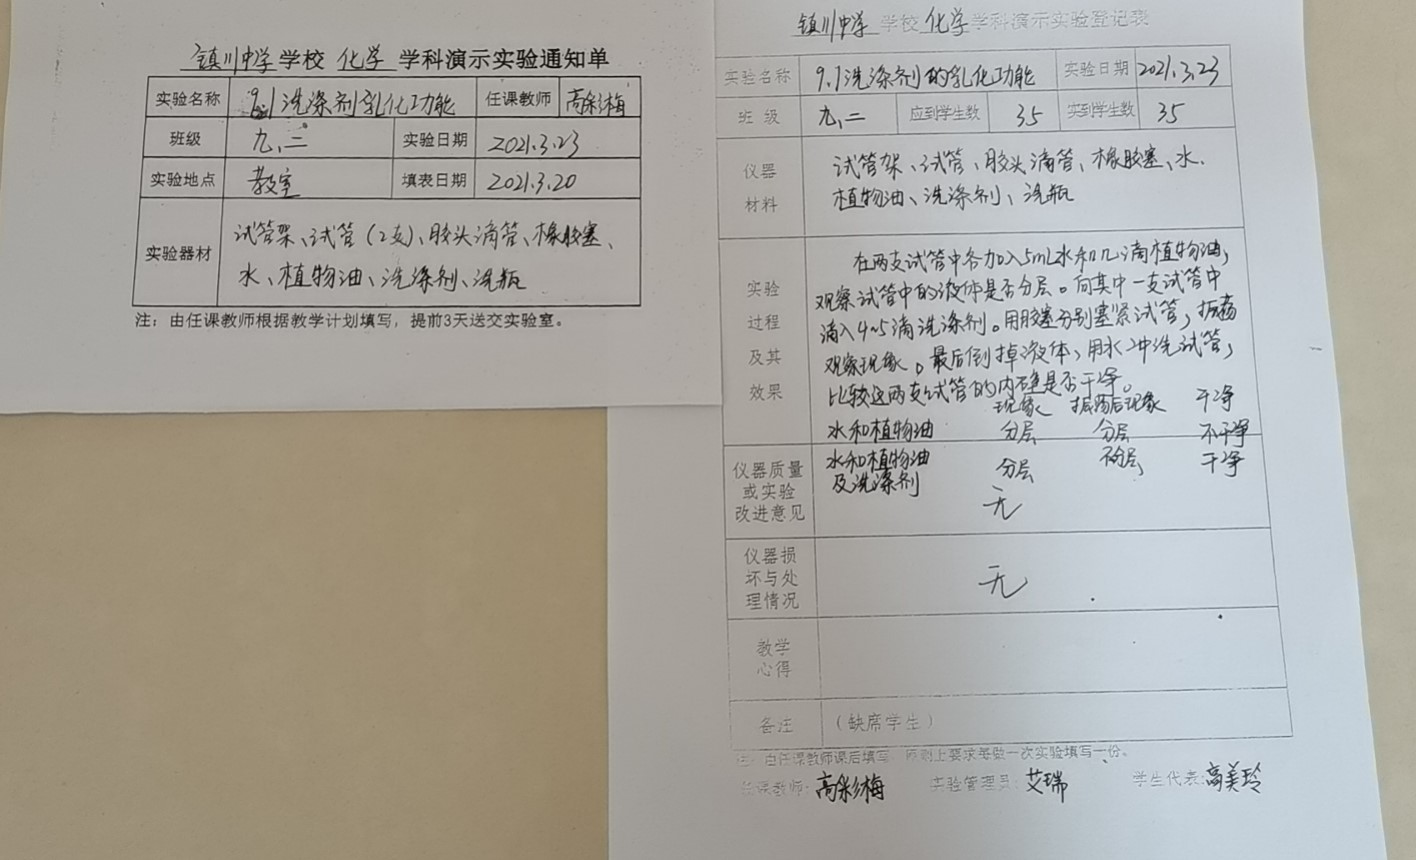 镇川中学学校 化学 学科演示实验通知单
实验名称 9.1洗涤剂乳化功能 任课教师 高彩梅
班级 九、二 实验日期 2021.3.23
实验地点 教室 填表日期 2021.3.20
实验器材
试管架、试管(2支)、胶头滴管、橡胶塞、
水、植物油、洗涤剂、洗瓶
注：由任课教师根据教学计划填写，提前3天送交实验室。
镇川中学 学校 化学 学科演示实验登记表
实验名称 9.1洗涤剂的乳化功能 实验日期 2021.3.23
班 级 九、二 应到学生数 35 实到学生数 35
仪器
材料
试管架、试管、胶头滴管、橡胶塞、水、
植物油、洗涤剂、洗瓶
实验
过程
及其
效果
在两支试管中各加入5mL水和几滴植物油，
观察试管中的液体是否分层。向其中一支试管中
滴入4~5滴洗涤剂。用胶塞分别塞紧试管，振荡
观察现象。最后倒掉液体，用水冲洗试管，
比较这两支试管的内壁是否干净。
现象 振荡后现象 干净
水和植物油 分层 分层 不干净
水和植物油 分层 不分层 干净
及洗涤剂
仪器质量
或实验
改进意见
无
仪器损
坏与处
理情况
无
教学
心得
备注 （缺席学生）
注：由任课教师课后填写，原则上要求每做一次实验填写一份。
任课教师：高彩梅 实验管理员：艾瑞 学生代表：高美玲